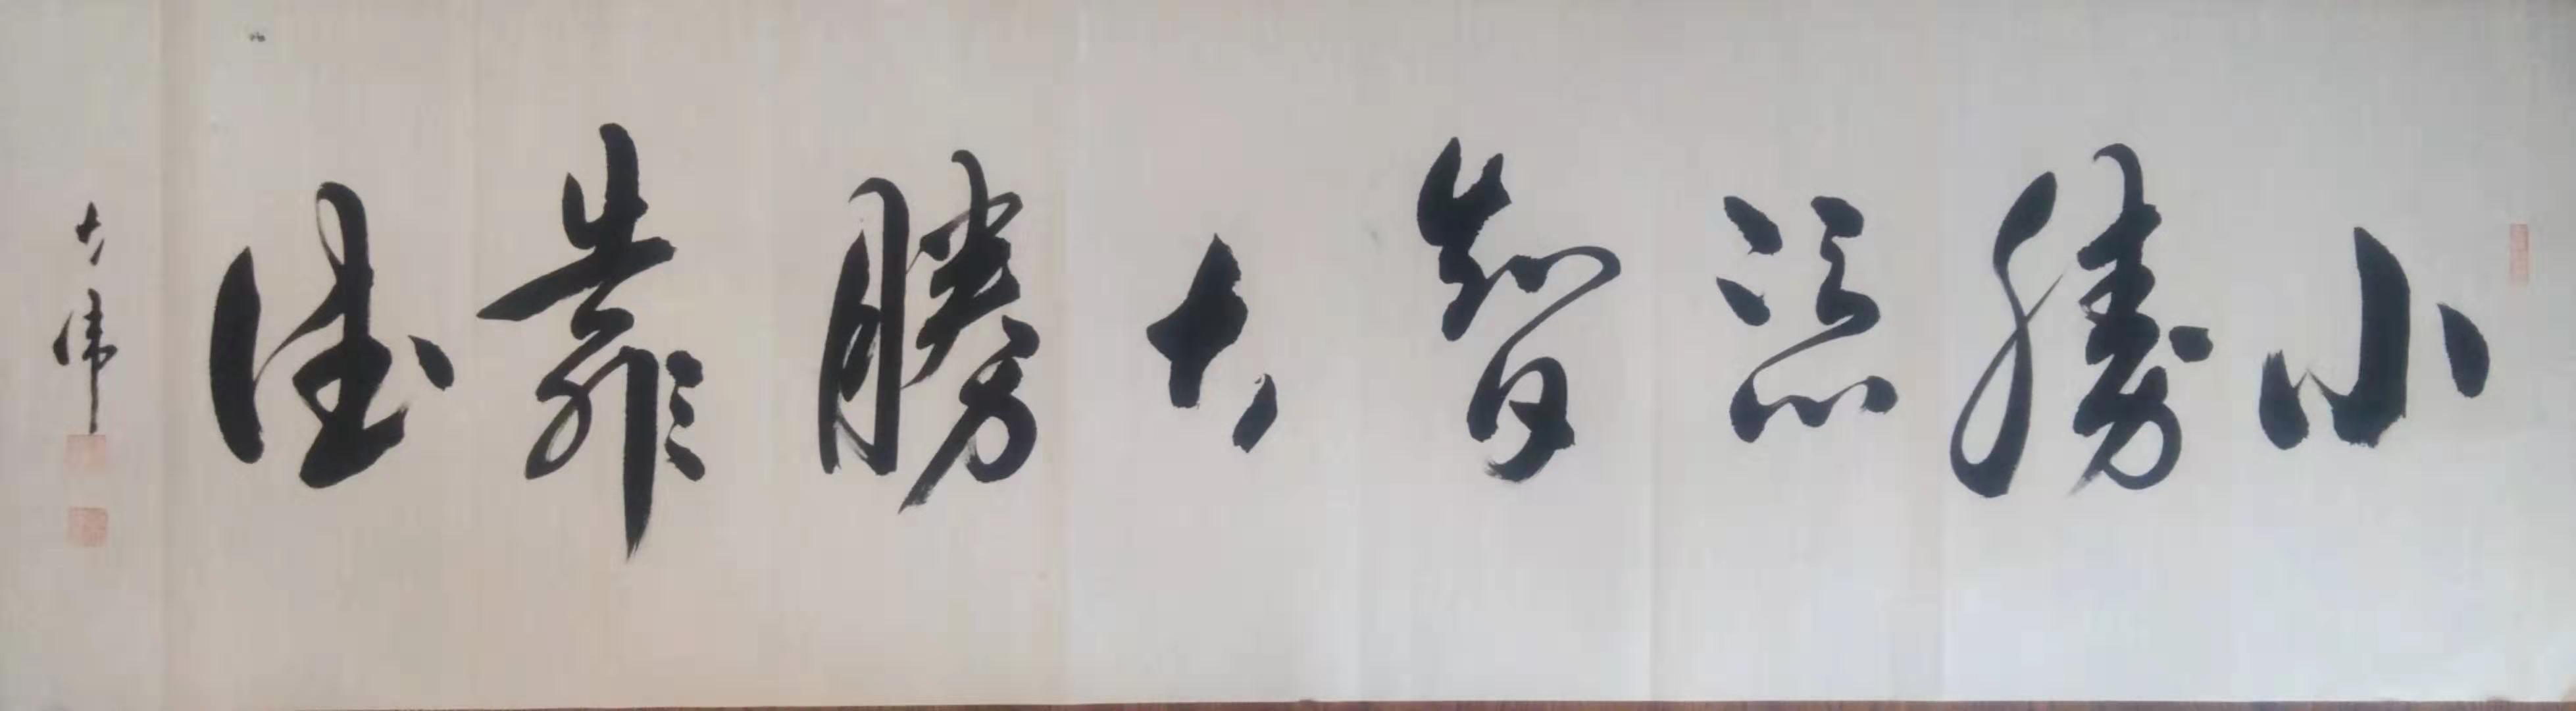 小勝憑智大勝靠德
大偉